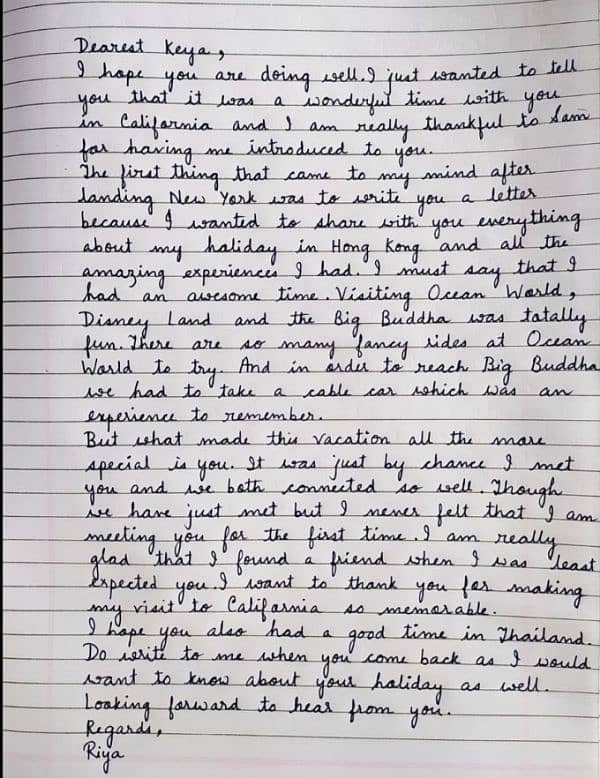 Dearest Keya,
I hope you are doing well. I just wanted to tell
you that it was a wonderful time with you
in California and I am really thankful to Sam
for having me introduced to you.
The first thing that came to my mind after
landing New York was to write you a letter
because I wanted to share with you everything
about my holiday in Hong Kong and all the
amazing experiences I had. I must say that I
had an awesome time. Visiting Ocean World,
Disney Land and the Big Buddha was totally
fun. There are so many fancy rides at Ocean
World to try. And in order to reach Big Buddha
we had to take a cable car which was an
experience to remember.
But what made this vacation all the more
special is you. It was just by chance I met
you and we both connected so well. Though
we have just met but I never felt that I am
meeting you for the first time. I am really
glad that I found a friend when I was least
expected you. I want to thank you for making
my visit to California so memorable.
I hope you also had a good time in Thailand.
Do write to me when you come back as I would
want to know about your holiday as well.
Looking forward to hear from you.
Regards,
Riya